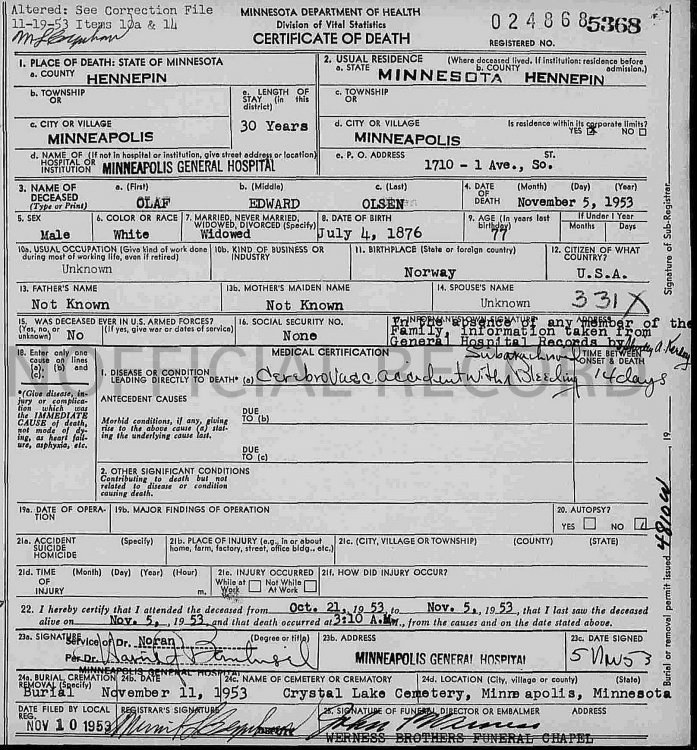 Altered: See Correction File
11-19-53 Items 10a & 14
MINNESOTA DEPARTMENT OF HEALTH
Division of Vital Statistics
CERTIFICATE OF DEATH
024868 5368
REGISTERED NO.
1. PLACE OF DEATH: STATE OF MINNESOTA
a. COUNTY
HENNEPIN
2. USUAL RESIDENCE (Where deceased lived. If institution: residence before admission.)
a. STATE MINNESOTA b. COUNTY HENNEPIN
b. TOWNSHIP OR
e. LENGTH OF STAY (in this district)
30 Years
c. TOWNSHIP OR
c. CITY OR VILLAGE
MINNEAPOLIS
d. CITY OR VILLAGE
MINNEAPOLIS
Is residence within its corporate limits?
YES X NO
d. NAME OF HOSPITAL OR INSTITUTION (If not in hospital or institution, give street address or location)
MINNEAPOLIS GENERAL HOSPITAL
e. P. O. ADDRESS ST.
1710 - 1 Ave., So.
3. NAME OF DECEASED (Type or Print)
a. (First) b. (Middle) c. (Last)
OLAF EDWARD OLSEN
4. DATE OF DEATH (Month) (Day) (Year)
November 5, 1953
5. SEX
Male
6. COLOR OR RACE
White
7. MARRIED, NEVER MARRIED, WIDOWED, DIVORCED (Specify)
Widowed
8. DATE OF BIRTH
July 4, 1876
9. AGE (In years last birthday)
77
If Under 1 Year
Months Days
10a. USUAL OCCUPATION (Give kind of work done during most of working life, even if retired)
Unknown
10b. KIND OF BUSINESS OR INDUSTRY
11. BIRTHPLACE (State or foreign country)
Norway
12. CITIZEN OF WHAT COUNTRY?
U.S.A.
13. FATHER'S NAME
Not Known
13b. MOTHER'S MAIDEN NAME
Not Known
14. SPOUSE'S NAME
Unknown
331X
15. WAS DECEASED EVER IN U.S. ARMED FORCES?
(Yes, no, or unknown) No (If yes, give war or dates of service)
16. SOCIAL SECURITY NO.
None
INFORMANT'S OWN SIGNATURE ADDRESS
In the absence of any member of the
Family, information taken from
General Hospital Records by
18. Enter only one cause on lines (a), (b) and (c).
MEDICAL CERTIFICATION
TIME BETWEEN ONSET & DEATH
1. DISEASE OR CONDITION LEADING DIRECTLY TO DEATH* (a) Cerebro Vasc. accident with Subarachnoid Bleeding 14 days
*(Give disease, injury or complication which was the IMMEDIATE CAUSE of death, not mode of dying, as heart failure, asphyxia, etc.
ANTECEDENT CAUSES
Morbid conditions, if any, giving rise to the above cause (a) stating the underlying cause last.
DUE TO (b)
DUE TO (c)
2. OTHER SIGNIFICANT CONDITIONS
Contributing to death but not related to disease or condition causing death.
UNOFFICIAL RECORD
19a. DATE OF OPERATION
19b. MAJOR FINDINGS OF OPERATION
20. AUTOPSY?
YES NO
21a. ACCIDENT SUICIDE HOMICIDE (Specify)
21b. PLACE OF INJURY (e.g., in or about home, farm, factory, street, office bldg., etc.)
21c. (CITY, VILLAGE OR TOWNSHIP) (COUNTY) (STATE)
21d. TIME OF INJURY (Month) (Day) (Year) (Hour) m.
21e. INJURY OCCURRED
While at Work Not While At Work
21f. HOW DID INJURY OCCUR?
22. I hereby certify that I attended the deceased from Oct. 21, 1953 to Nov. 5, 1953, that I last saw the deceased
alive on Nov. 5, 1953 and that death occurred at 3:10 A.M., from the causes and on the date stated above.
23a. SIGNATURE (Degree or title)
Service of Dr. Noran
Per Dr.
MINNEAPOLIS GENERAL HOSPITAL
23b. ADDRESS
MINNEAPOLIS GENERAL HOSPITAL
23c. DATE SIGNED
5 Nov 53
24a. BURIAL CREMATION REMOVAL (Specify)
Burial
24b. DATE
November 11, 1953
24c. NAME OF CEMETERY OR CREMATORY
Crystal Lake Cemetery,
24d. LOCATION (City, village or county) (State)
Minneapolis, Minnesota
DATE FILED BY LOCAL REG.
NOV 10 1953
REGISTRAR'S SIGNATURE
25. SIGNATURE OF FUNERAL DIRECTOR OR EMBALMER ADDRESS
WERNESS BROTHERS FUNERAL CHAPEL
Signature of Sub-Registrar
19
4810W
Burial or removal permit issued